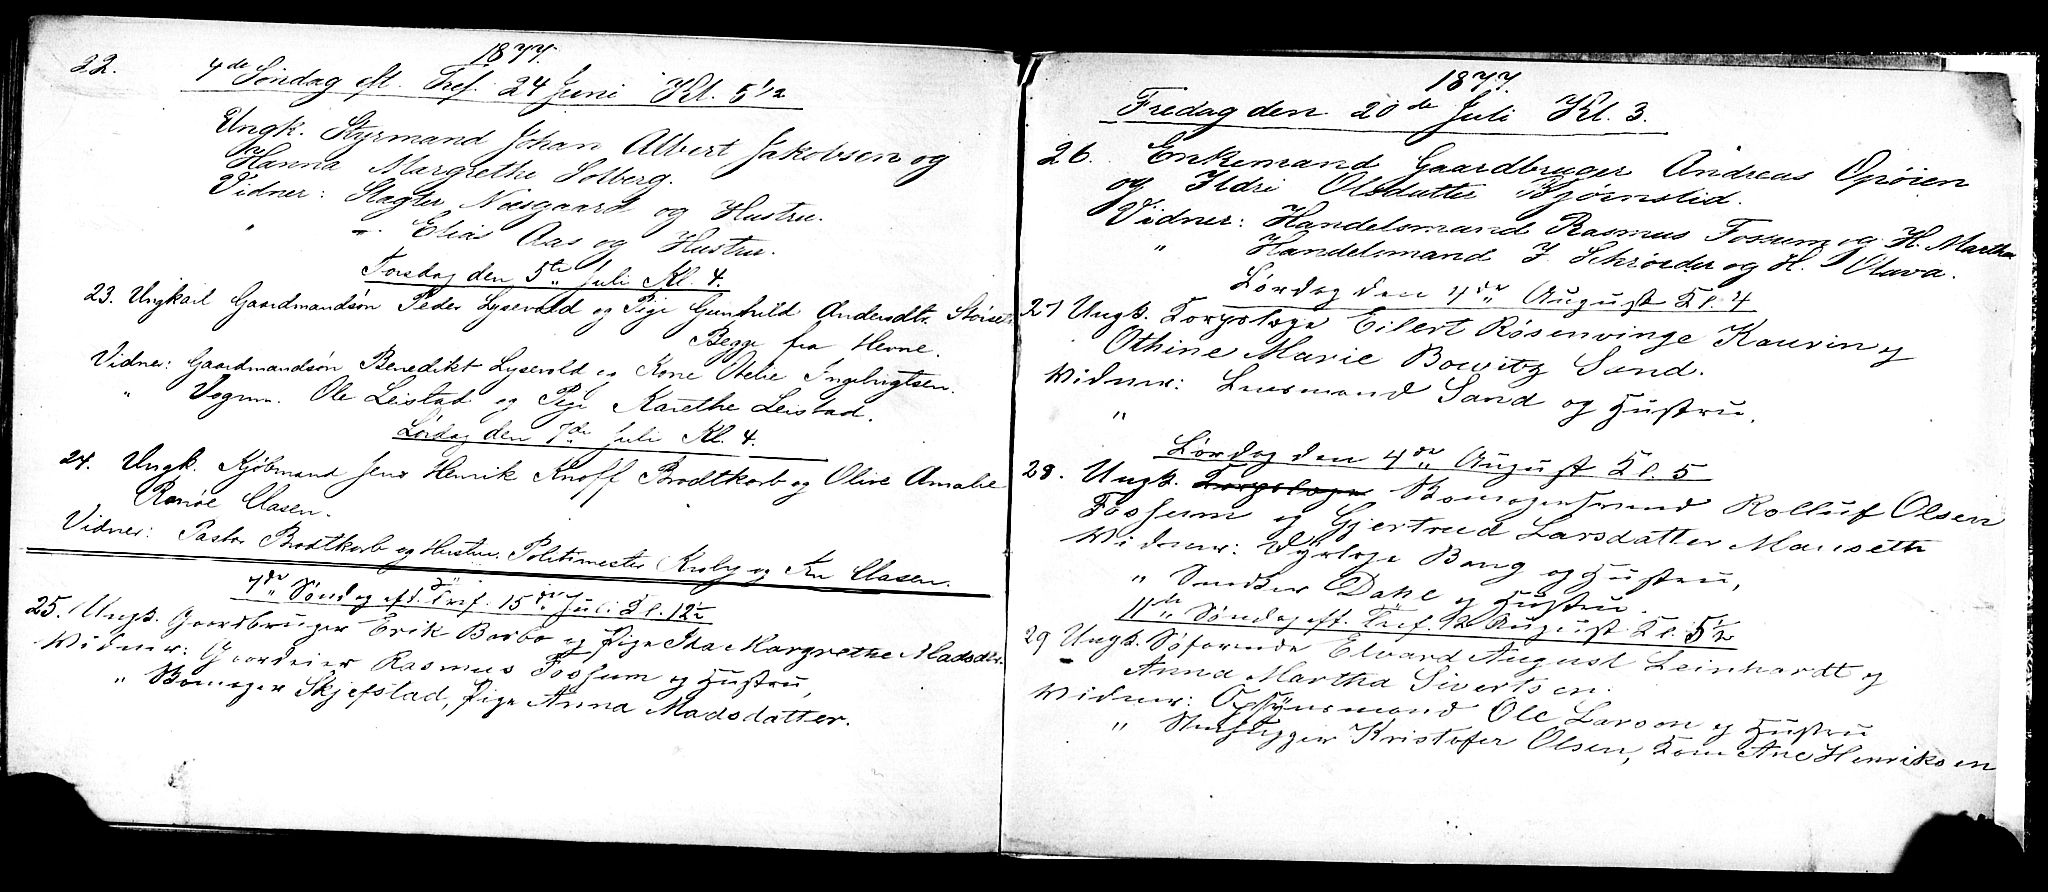 1877.
22. 4de Søndag eft. Tref. 24 Juni Kl. 5 1/2
Ungk. Styrmand Johan Albert Jakobsen og
Hanna Margrethe Solberg.
Vidner: Slagter Næsgaard og Hustru.
" " Elias Aas og Hustru.
Torsdag den 5te Juli Kl. 4.
23. Ungkarl Gaardmandsøn Peder Lysevold og Pige Gunhild Andersdtr.
Begge fra Hevne.
Vidner: Gaardmandsøn Benedikt Lysevold og Kone Otelie Ingebrigtsen.
" Vognm. Ole Leistad og Pige Karethe Leistad.
Lørdag den 7de Juli Kl. 4.
24. Ungk. Kjøbmand Jens Henrik Knoff Brodtkorb og Olive Amalie
Ranøe Clasen.
Vidner: Pastor Brodtkorb og Hustru. Politimester Krohg og Fru Clasen.
7de Søndag eft. Tref. 15de Juli Kl. 12
25. Ungk. Gaardbruger Erik Barbo og Pige Ida Margrethe Madsdtr.
Vidner: Gaardeier Rasmus Fossum og Hustru,
" Bomager Skjefstad, Pige Anna Madsdatter.
1877.
Fredag den 20de Juli Kl. 3.
26. Enkemand Gaardbruger Andreas Opøien
og Ildri Olsdatter Bjørnslid.
Vidner: Handelsmand Rasmus Fossum og H. Martha
" Handelsmand J. Schrøeder og H. Olava.
Lørdag den 4de August Kl. 4
27 Ungk. Korpslæge Eilert Røsenvinge Kaurin og
Othine Marie Bowitz Sand.
Vidner: Lensmand Sand og Hustru.
"
Lørdag den 4de August Kl. 5
28. Ungk. Korpslæge Bomagersvend Rolluf Olsen
Fossum og Gjertrud Larsdatter Mauseth
Vidner: Dyrlæge Bang og Hustru,
" Snedker Dahl og Hustru.
11te Søndag eft. Tref. 12 August Kl. 5 1/2
29 Ungk. Søfarende Edvard August Leinhardt og
Anna Martha Sivertsen.
Vidner: Opsynsmand Ole Larson og Hustru
" Stenhugger Kristofer Olsen, Kone Ane Henriksen